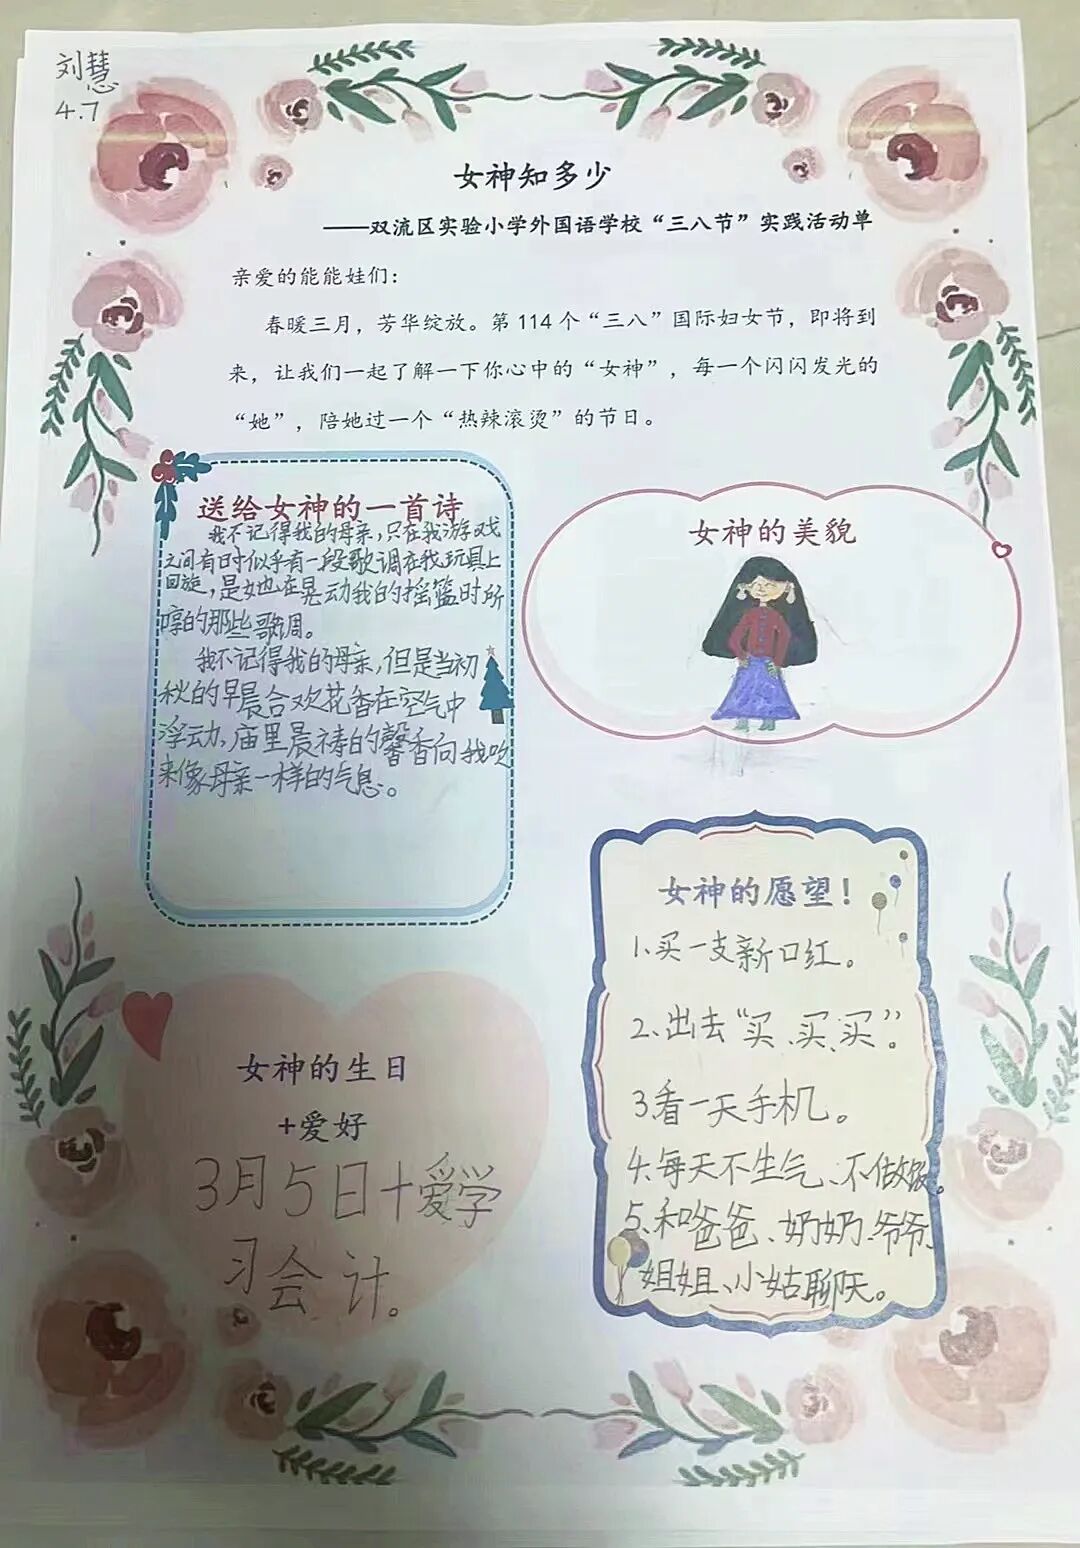 刘慧
4.7
女神知多少
——双流区实验小学外国语学校“三八节”实践活动单
亲爱的能能娃们：
春暖三月，芳华绽放。第114个“三八”国际妇女节，即将到
来，让我们一起了解一下你心中的“女神”，每一个闪闪发光的
“她”，陪她过一个“热辣滚烫”的节日。
送给女神的一首诗
我不记得我的母亲,只在我游戏
之间有时似乎有一段歌调在我玩具上
回旋,是她在晃动我的摇篮时所
哼的那些歌调。
我不记得我的母亲,但是当初
秋的早晨合欢花香在空气中
浮动,庙里晨祷的馨香向我吹
来像母亲一样的气息。
女神的美貌
女神的愿望！
1.买一支新口红。
2.出去“买、买、买”。
3.看一天手机。
4.每天不生气、不做饭。
5.和爸爸、奶奶、爷爷、
姐姐、小姑聊天。
女神的生日
+爱好
3月5日+爱学
习会计。